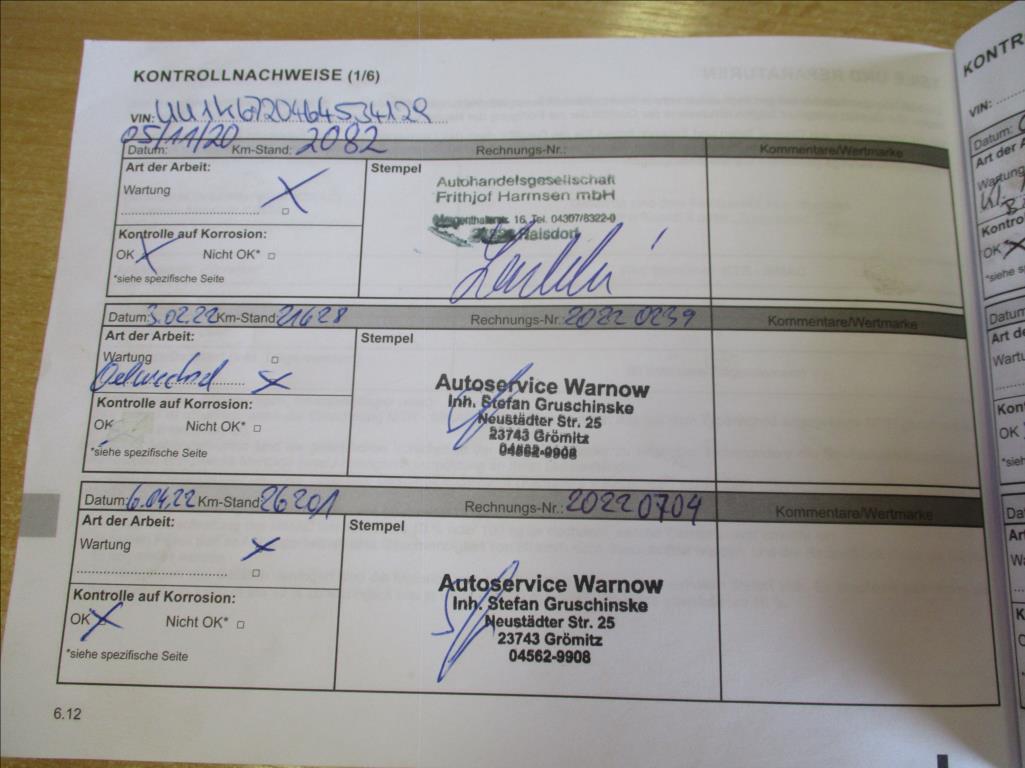 KONTROLLNACHWEISE (1/6)
VIN: UU1K6720464534129
05/11/20 2082
Datum: Km-Stand: Rechnungs-Nr.: Kommentare/Wertmarke
Art der Arbeit: Stempel
Wartung X
Autohandelsgesellschaft
Frithjof Harmsen mbH
16, Tel. 04307/8322-0
Raisdorf
Kontrolle auf Korrosion:
OK X Nicht OK*
*siehe spezifische Seite
Datum: 3.02.22 Km-Stand: 21628 Rechnungs-Nr. 2022 0239 Kommentare/Wertmarke
Art der Arbeit: Stempel
Wartung
Oelwechsel X
Kontrolle auf Korrosion:
OK Nicht OK*
*siehe spezifische Seite
Autoservice Warnow
Inh. Stefan Gruschinske
Neustädter Str. 25
23743 Grömitz
04562-9908
Datum: 6.04.22 Km-Stand: 26201 Rechnungs-Nr.: 2022 0704 Kommentare/Wertmarke
Art der Arbeit: Stempel
Wartung X
Kontrolle auf Korrosion:
OK X Nicht OK*
*siehe spezifische Seite
Autoservice Warnow
Inh. Stefan Gruschinske
Neustädter Str. 25
23743 Grömitz
04562-9908
6.12
KONTR
VIN:
Datum:
Art der
Wartung
Kontro
OK X
*siehe
Datum
Art de
Wartu
Kon
OK
*sieh